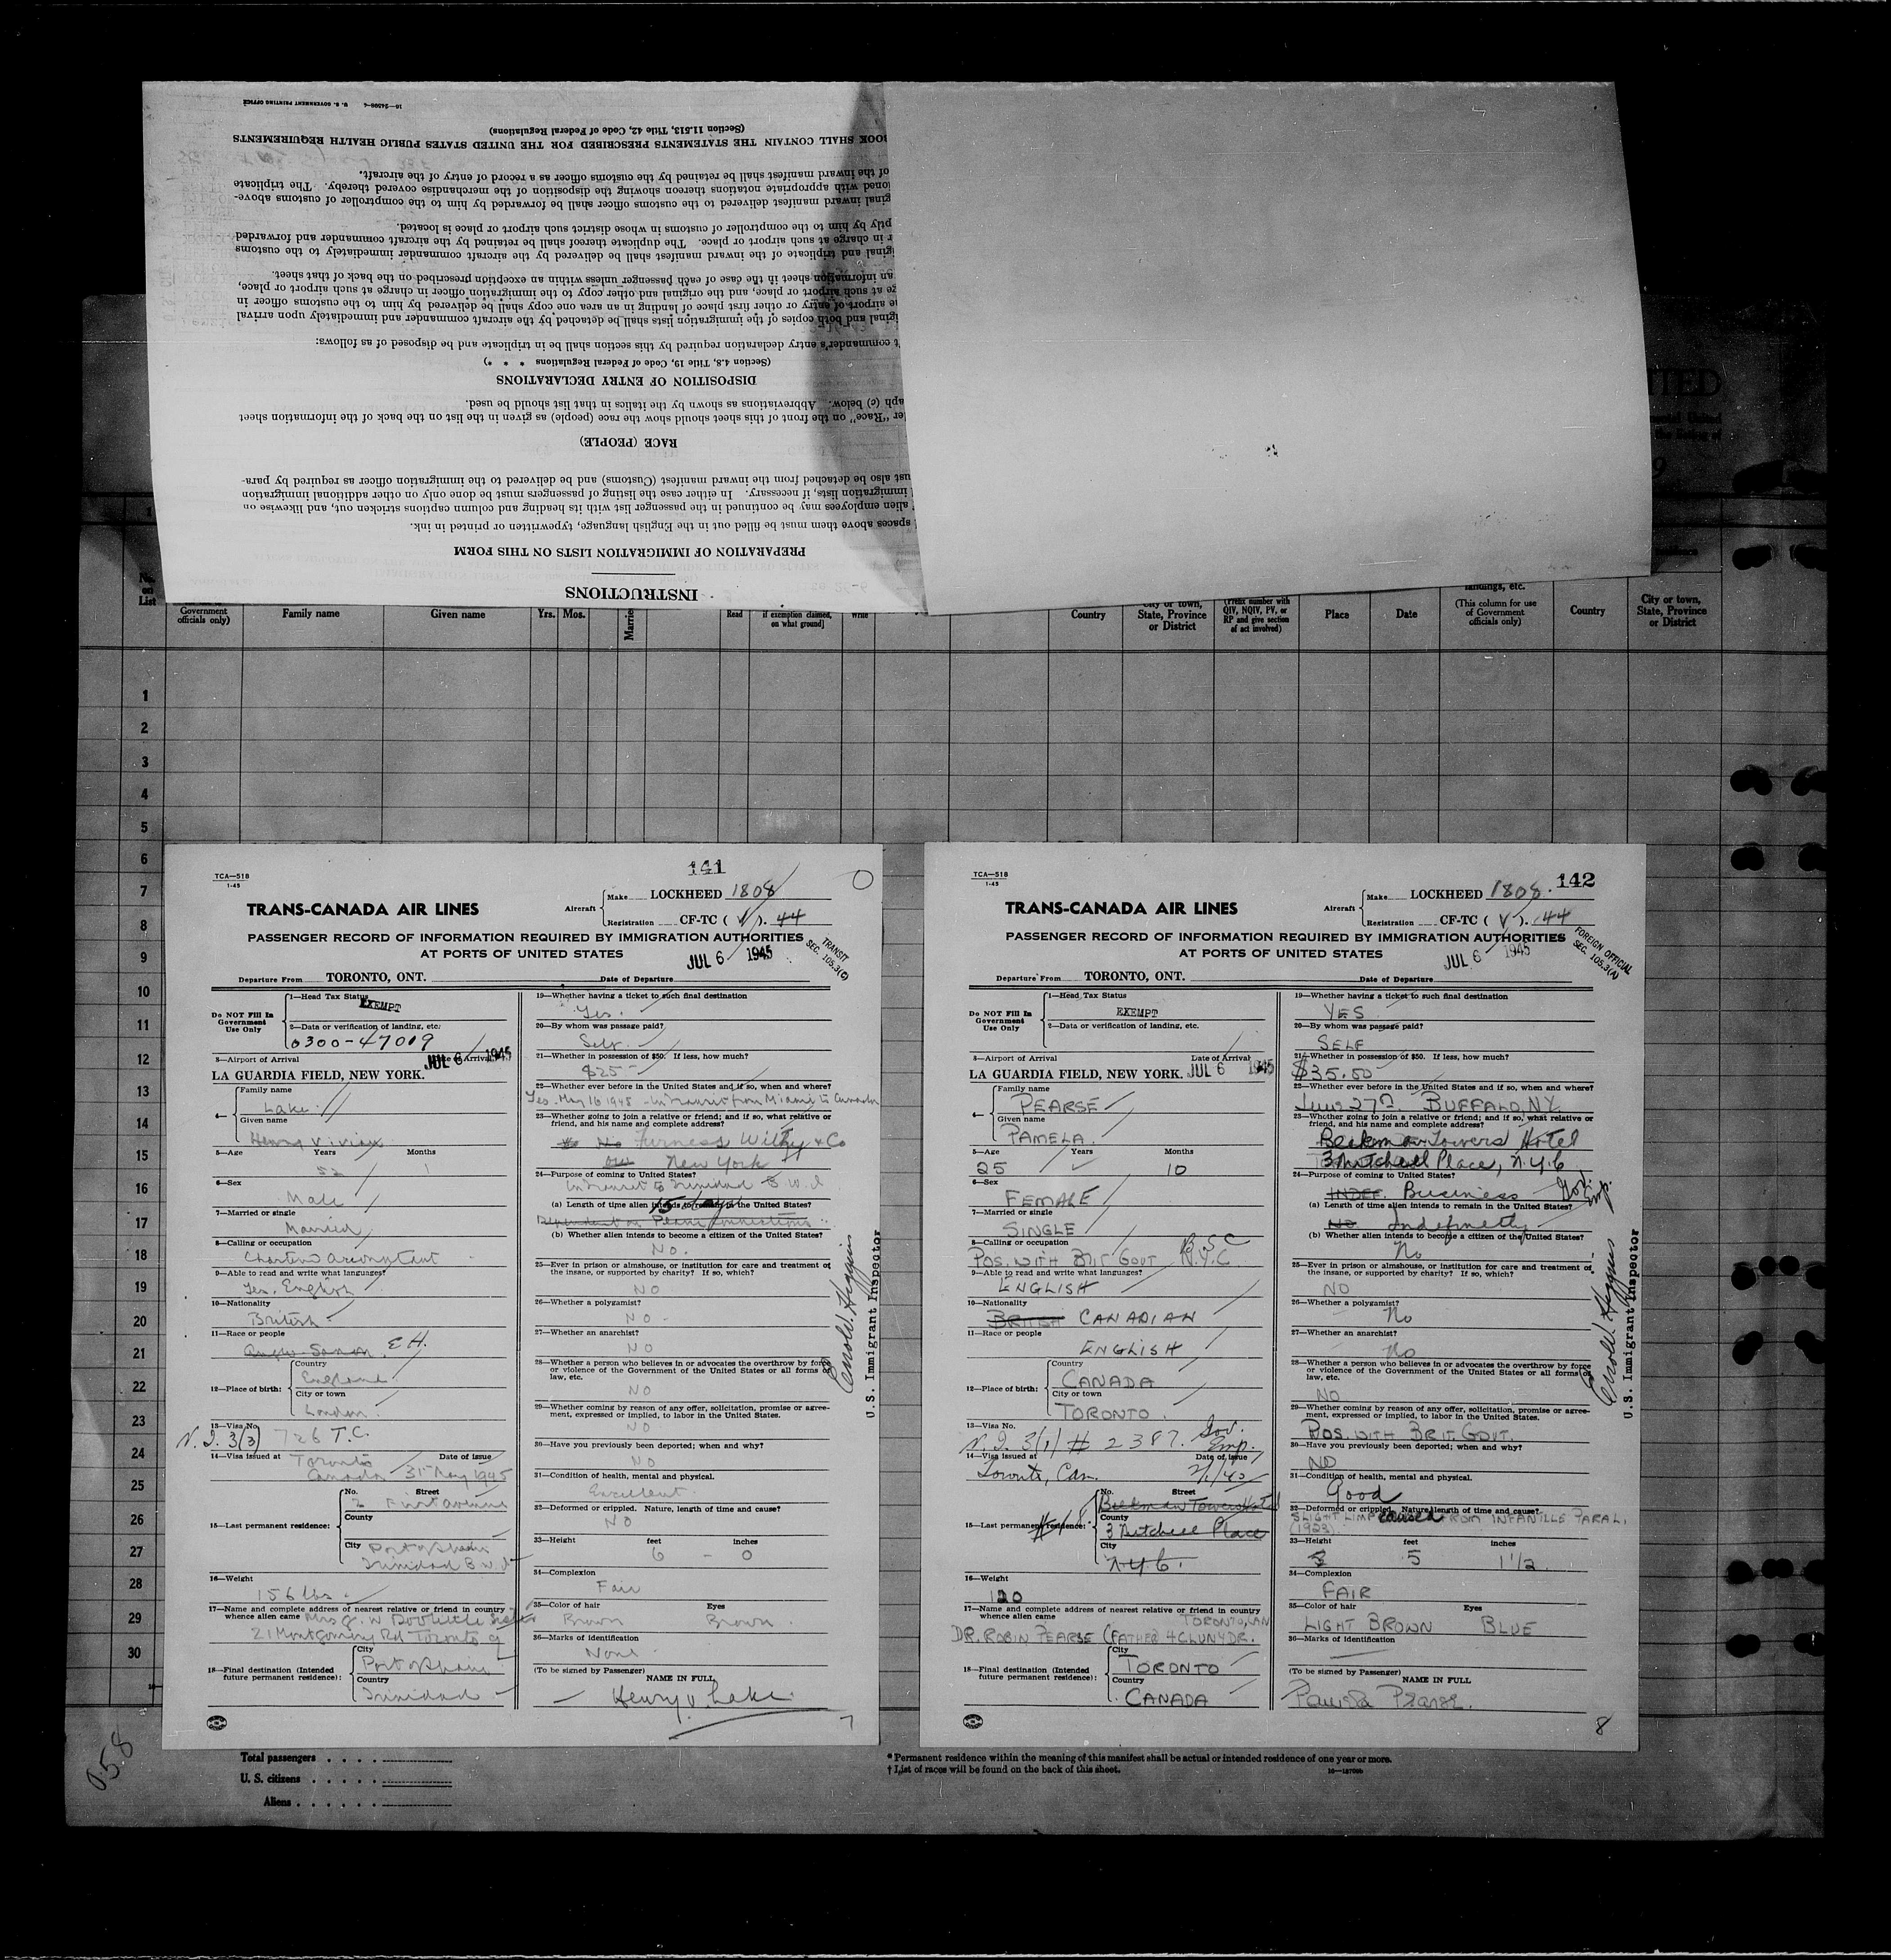 16—24598-4 U. S. GOVERNMENT PRINTING OFFICE
(Section 11.513, Title 42, Code of Federal Regulations)
BOOK SHALL CONTAIN THE STATEMENTS PRESCRIBED FOR THE UNITED STATES PUBLIC HEALTH REQUIREMENTS
of the inward manifest shall be retained by the customs officer as a record of entry of the aircraft.
ioned with appropriate notations thereon showing the disposition of the merchandise covered thereby. The triplicate
ginal inward manifest delivered to the customs officer shall be forwarded by him to the comptroller of customs above-
ptly by him to the comptroller of customs in whose district such airport or place is located.
r in charge at such airport or place. The duplicate thereof shall be retained by the aircraft commander and forwarded
ginal and triplicate of the inward manifest shall be delivered by the aircraft commander immediately to the customs
an information sheet in the case of each passenger unless within an exception prescribed on the back of that sheet.
ge at such airport or place, and the original and other copy to the immigration officer in charge at such airport or place,
he airport of entry or other first place of landing in an area one copy shall be delivered by him to the customs officer in
ginal and both copies of the immigration lists shall be detached by the aircraft commander and immediately upon arrival
t commander's entry declaration required by this section shall be in triplicate and be disposed of as follows:
(Section 4.8, Title 19, Code of Federal Regulations * * *)
DISPOSITION OF ENTRY DECLARATIONS
aph (c) below. Abbreviations as shown by the italics in that list should be used.
er "Race" on the front of this sheet should show the race (people) as given in the list on the back of the information sheet
RACE (PEOPLE)
ust also be detached from the inward manifest (Customs) and be delivered to the immigration officer as required by para-
immigration lists, if necessary. In either case the listing of passengers must be done only on other additional immigration
alien employees may be continued in the passenger list with its heading and column captions stricken out, and likewise on
spaces above them must be filled out in the English language, typewritten or printed in ink.
PREPARATION OF IMMIGRATION LISTS ON THIS FORM
INSTRUCTIONS
ITED
No. on List
Government officials only)
Family name
Given name
Yrs.
Mos.
Married
Read
if exemption claimed, on what ground]
Write
Country
City or town, State, Province or District
(Prefix number with QIV, NQIV, PV, or RP and give section of act involved)
Place
Date
landings, etc. (This column for use of Government officials only)
Country
City or town, State, Province or District
1
2
3
4
5
6
7
8
9
10
11
12
13
14
15
16
17
18
19
20
21
22
23
24
25
26
27
28
29
30
TCA—518
1-45
141
Aircraft Make LOCKHEED 1808
Registration CF-TC ( V ). 44
TRANS-CANADA AIR LINES
PASSENGER RECORD OF INFORMATION REQUIRED BY IMMIGRATION AUTHORITIES
AT PORTS OF UNITED STATES
JUL 6 1945
TRANSIT
SEC. 105.3(C)
Departure From TORONTO, ONT. Date of Departure
DO NOT Fill In Government Use Only
1—Head Tax Status
EXEMPT
2—Data or verification of landing, etc.
0300-47019
3—Airport of Arrival Date of Arrival
LA GUARDIA FIELD, NEW YORK. JUL 6 1945
4— Family name
Lake
Given name
Henry Vivian
5—Age Years Months
52 1
6—Sex
Male
7—Married or single
Married
8—Calling or occupation
Chartered Accountant
9—Able to read and write what languages?
Yes. English
10—Nationality
British
11—Race or people
Anglo-Saxon E.H.
12—Place of birth: Country
England
City or town
London
13—Visa No.
N. I. 3(3) 726 T.C.
14—Visa issued at Date of issue
Toronto Canada 31st May 1945
15—Last permanent residence: No. Street
2 First Avenue
County
City Port of Spain
Trinidad B.W.I
16—Weight
156 lbs
17—Name and complete address of nearest relative or friend in country
whence alien came Mrs G. W Doolittle Sister
21 Montgomery Rd Toronto
18—Final destination (Intended future permanent residence): City
Port of Spain
Country
Trinidad
19—Whether having a ticket to such final destination
Yes.
20—By whom was passage paid?
Self.
21—Whether in possession of $50. If less, how much?
$25
22—Whether ever before in the United States and if so, when and where?
Yes. May 16 1945 - In transit from Miami to Canada
23—Whether going to join a relative or friend; and if so, what relative or
friend, and his name and complete address?
No Furness Withy & Co
New York
24—Purpose of coming to United States?
In transit to Trinidad B.W.I
(a) Length of time alien intends to remain in the United States?
15 days
Dependent on Plane Connections
(b) Whether alien intends to become a citizen of the United States?
No.
25—Ever in prison or almshouse, or institution for care and treatment of
the insane, or supported by charity? If so, which?
NO
26—Whether a polygamist?
NO
27—Whether an anarchist?
NO
28—Whether a person who believes in or advocates the overthrow by force
or violence of the Government of the United States or all forms of
law, etc.
NO
29—Whether coming by reason of any offer, solicitation, promise or agree-
ment, expressed or implied, to labor in the United States.
NO
30—Have you previously been deported; when and why?
NO
31—Condition of health, mental and physical.
Excellent
32—Deformed or crippled. Nature, length of time and cause?
NO
33—Height feet inches
6 - 0
34—Complexion
Fair
35—Color of hair Eyes
Brown Brown
36—Marks of identification
None
(To be signed by Passenger)
NAME IN FULL
Henry V. Lake
7
Errol W. Higgins
U.S. Immigrant Inspector
TCA—518
1-45
142
Aircraft Make LOCKHEED 1808.
Registration CF-TC ( V ). 44
TRANS-CANADA AIR LINES
PASSENGER RECORD OF INFORMATION REQUIRED BY IMMIGRATION AUTHORITIES
AT PORTS OF UNITED STATES
JUL 6 1945
FOREIGN OFFICIAL
SEC. 105.3(A)
Departure From TORONTO, ONT. Date of Departure
DO NOT Fill In Government Use Only
1—Head Tax Status
EXEMPT
2—Data or verification of landing, etc.
3—Airport of Arrival Date of Arrival
LA GUARDIA FIELD, NEW YORK. JUL 6 1945
4— Family name
PEARSE
Given name
PAMELA.
5—Age Years Months
25 10
6—Sex
FEMALE
7—Married or single
SINGLE
8—Calling or occupation
POS. WITH BRIT GOVT B.S.C N.Y.C
9—Able to read and write what languages?
ENGLISH
10—Nationality
BRITISH CANADIAN
11—Race or people
ENGLISH
12—Place of birth: Country
CANADA
City or town
TORONTO.
13—Visa No.
N. I. 3(1) # 2387. Gov. Emp.
14—Visa issued at Date of issue
Toronto, Can.
15—Last permanent residence: No. Street
Beekman Towers Hotel
County
3 Mitchell Place
City
N.Y.C.
16—Weight
120
17—Name and complete address of nearest relative or friend in country
whence alien came TORONTO, CAN
DR. ROBIN PEARSE (FATHER 4 CLUNY DR.
18—Final destination (Intended future permanent residence): City
TORONTO
Country
CANADA
19—Whether having a ticket to such final destination
YES
20—By whom was passage paid?
SELF
21—Whether in possession of $50. If less, how much?
$35.50
22—Whether ever before in the United States and if so, when and where?
June 27th BUFFALO, N.Y.
23—Whether going to join a relative or friend; and if so, what relative or
friend, and his name and complete address?
Beekman Towers Hotel
3 Mitchell Place, N.Y.C
24—Purpose of coming to United States?
INDEF. Business Gov. Emp.
(a) Length of time alien intends to remain in the United States?
No Indefinetly
(b) Whether alien intends to become a citizen of the United States?
No
25—Ever in prison or almshouse, or institution for care and treatment of
the insane, or supported by charity? If so, which?
NO
26—Whether a polygamist?
No
27—Whether an anarchist?
No
28—Whether a person who believes in or advocates the overthrow by force
or violence of the Government of the United States or all forms of
law, etc.
NO
29—Whether coming by reason of any offer, solicitation, promise or agree-
ment, expressed or implied, to labor in the United States.
POS. WITH BRIT. GOVT.
30—Have you previously been deported; when and why?
NO
31—Condition of health, mental and physical.
Good
32—Deformed or crippled. Nature, length of time and cause?
SLIGHT LIMP caused FROM INFANTILE PARAL.
(1923)
33—Height feet inches
5 1 1/2
34—Complexion
FAIR
35—Color of hair Eyes
LIGHT BROWN BLUE
36—Marks of identification
(To be signed by Passenger)
NAME IN FULL
Pamela Pearse.
8
Errol W. Higgins
U.S. Immigrant Inspector
058
Total passengers . . . .
U. S. citizens . . . . .
Aliens . . . . . .
* Permanent residence within the meaning of this manifest shall be actual or intended residence of one year or more.
† List of races will be found on the back of this sheet.